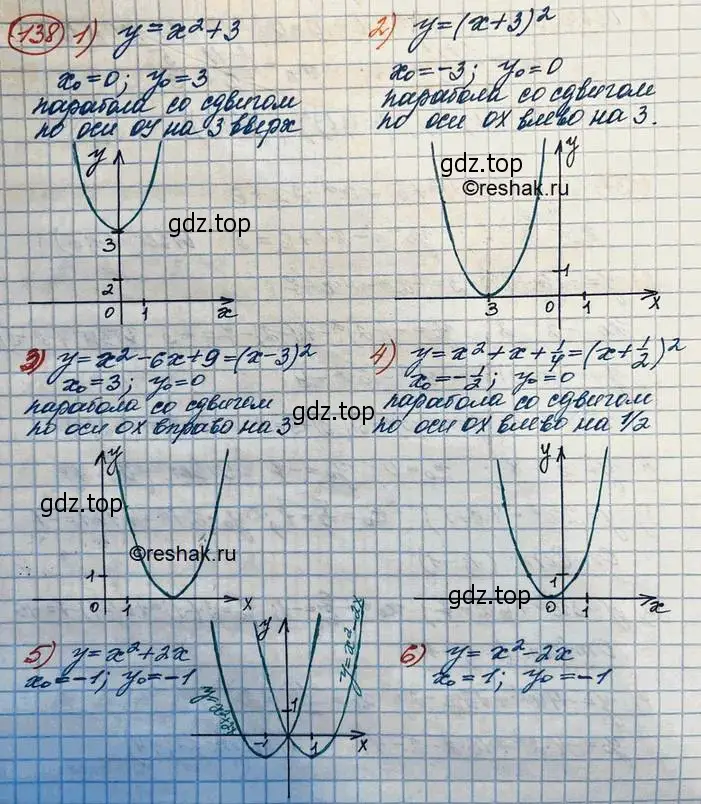 138 1) y = x² + 3
x₀ = 0; y₀ = 3
парабола со сдвигом
по оси OY на 3 вверх
y
gdz.top
3
2
0 1 x
2) y = (x+3)²
x₀ = -3; y₀ = 0
парабола со сдвигом
по оси OX влево на 3.
y
gdz.top
©reshak.ru
1
3 0 1 x
3) y = x² - 6x + 9 = (x-3)²
x₀ = 3; y₀ = 0
парабола со сдвигом
по оси OX вправо на 3
gdz.top
y
gdz.top
©reshak.ru
1
0 1 x
4) y = x² + x + 1/4 = (x + 1/2)²
x₀ = -1/2; y₀ = 0
парабола со сдвигом
по оси OX влево на 1/2
y
1
gdz.top
0 1 x
5) y = x² + 2x
x₀ = -1; y₀ = -1
y
y = x² - 2x
1
-1 1 x
6) y = x² - 2x
x₀ = 1; y₀ = -1